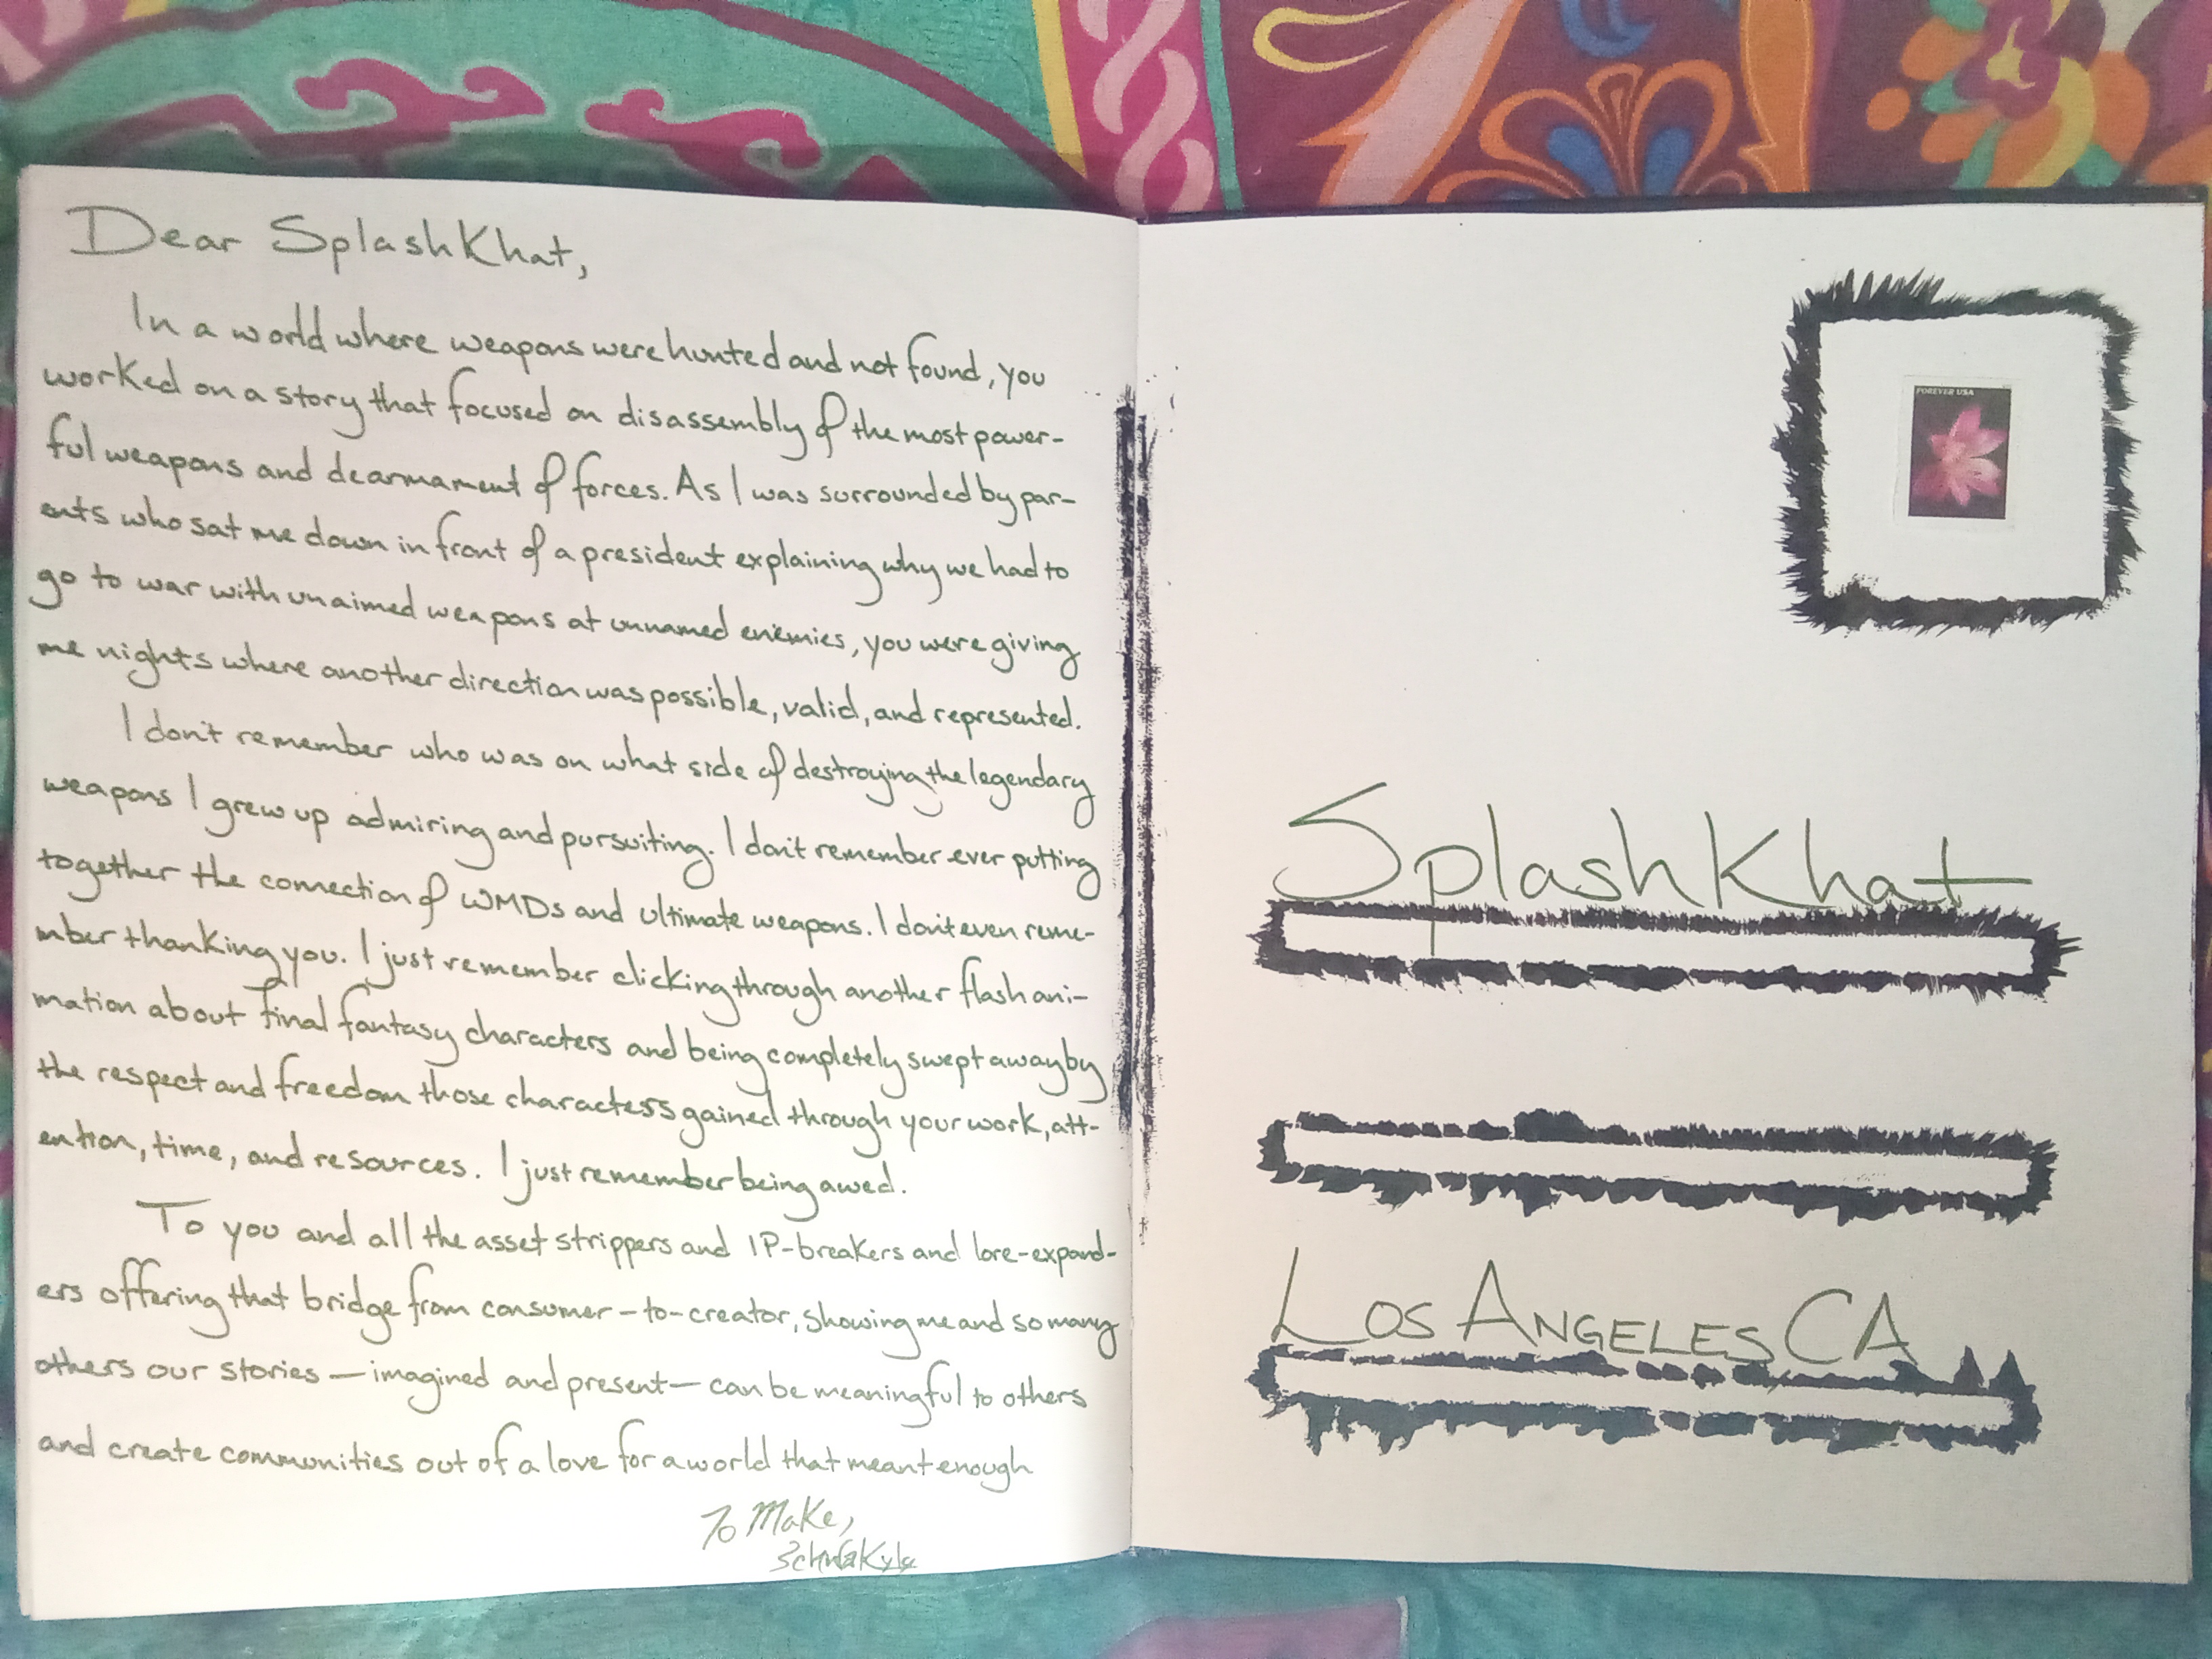 Dear SplashKhat,
In a world where weapons were hunted and not found, you
worked on a story that focused on disassembly of the most power-
ful weapons and dearmament of forces. As I was surrounded by par-
ents who sat me down in front of a president explaining why we had to
go to war with unaimed weapons at unnamed enemies, you were giving
me nights where another direction was possible, valid, and represented.
I don't remember who was on what side of destroying the legendary
weapons I grew up admiring and pursuiting. I don't remember ever putting
together the connection of WMDs and ultimate weapons. I don't even reme-
mber thanking you. I just remember clicking through another flash ani-
mation about final fantasy characters and being completely swept away by
the respect and freedom those characters gained through your work, att-
ention, time, and resources. I just remember being awed.
To you and all the asset strippers and IP-breakers and lore-expand-
ers offering that bridge from consumer-to-creator, showing me and so many
others our stories — imagined and present — can be meaningful to others
and create communities out of a love for a world that meant enough
To Make,
FOREVER USA
SplashKhat
LOS ANGELES CA